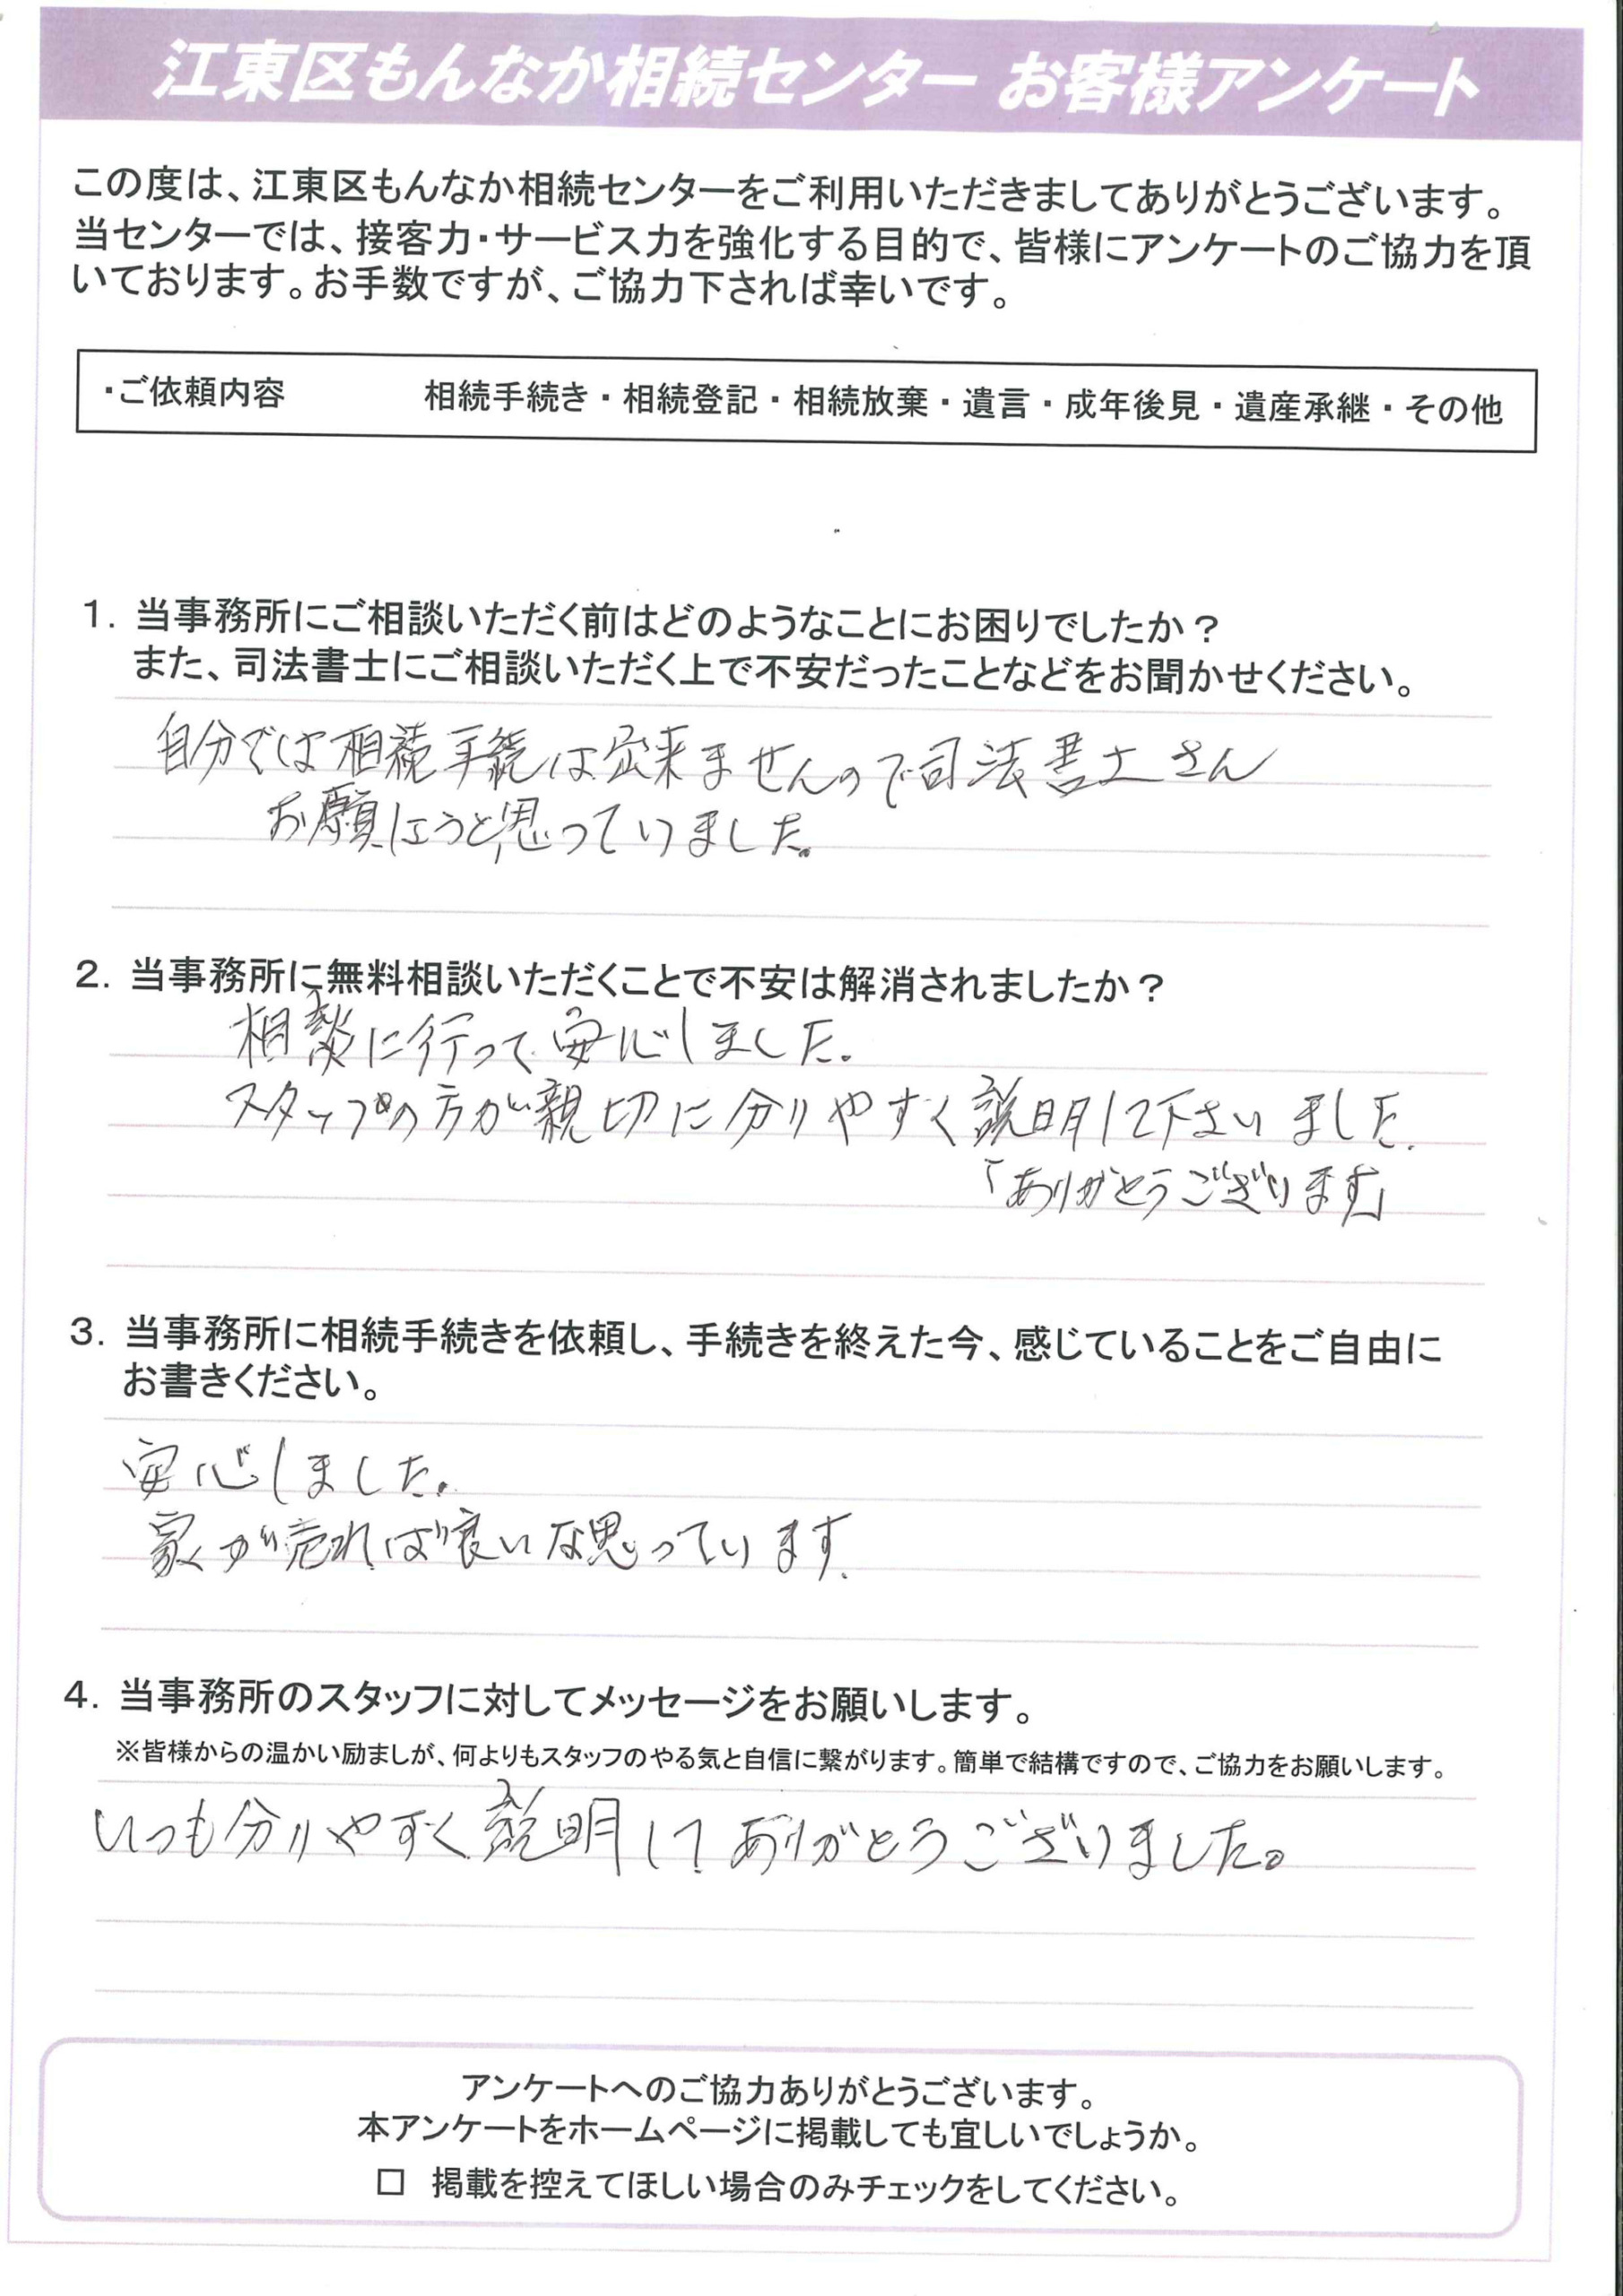 江東区もんなか相続センター お客様アンケート
この度は、江東区もんなか相続センターをご利用いただきましてありがとうございます。
当センターでは、接客力・サービス力を強化する目的で、皆様にアンケートのご協力を頂
いております。お手数ですが、ご協力下されば幸いです。
・ご依頼内容 相続手続き・相続登記・相続放棄・遺言・成年後見・遺産承継・その他
1. 当事務所にご相談いただく前はどのようなことにお困りでしたか?
また、司法書士にご相談いただく上で不安だったことなどをお聞かせください。
自分では相続手続は出来ませんので司法書士さん
お願しようと思っていました。
2. 当事務所に無料相談いただくことで不安は解消されましたか?
相談に行って安心しました.
スタップの方が親切に分りやすく説明して下さいました.
「ありがとうございます」
3. 当事務所に相続手続きを依頼し、手続きを終えた今、感じていることをご自由に
お書きください。
安心しました.
家が売れば良いな思っています.
4. 当事務所のスタッフに対してメッセージをお願いします。
※皆様からの温かい励ましが、何よりもスタッフのやる気と自信に繋がります。簡単で結構ですので、ご協力をお願いします。
いつも分りやすく説明してありがとうございました。
アンケートへのご協力ありがとうございます。
本アンケートをホームページに掲載しても宜しいでしょうか。
□ 掲載を控えてほしい場合のみチェックをしてください。